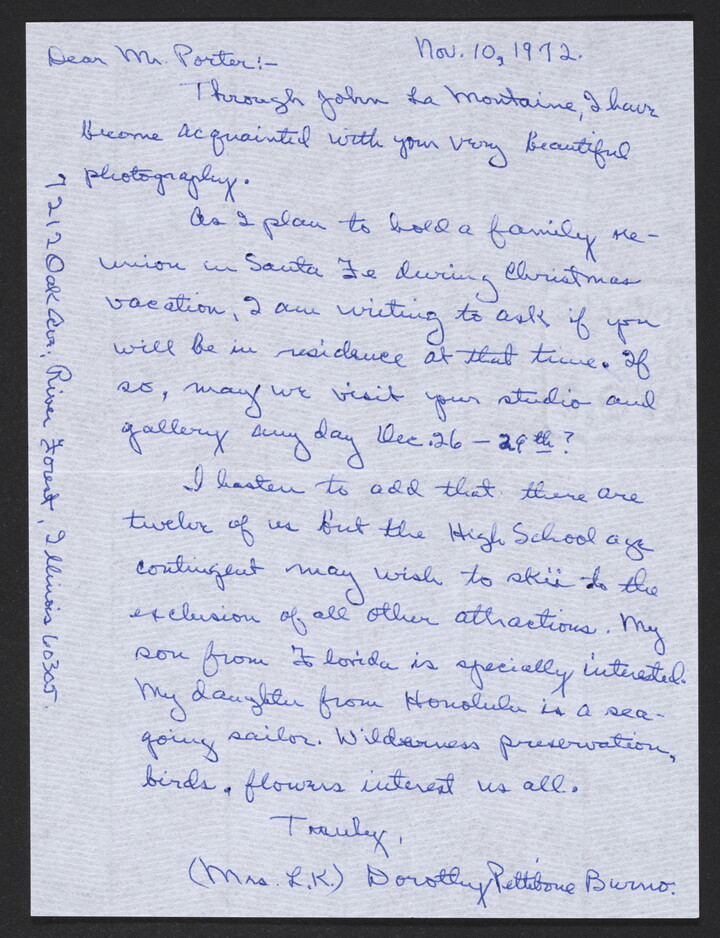 Nov. 10, 1972.
Dear Mr. Porter:-
Through John La Montaine, I have
become acquainted with your very beautiful
photography.
As I plan to hold a family re-
union in Santa Fe during Christmas
vacation, I am writing to ask if you
will be in residence at that time. If
so, may we visit your studio and
gallery any day Dec. 26 - 29th?
I hasten to add that there are
twelve of us but the High School age
contingent may wish to skii to the
exclusion of all other attractions. My
son from Florida is specially interested.
My daughter from Honolulu is a sea-
going sailor. Wilderness preservation,
birds, flowers interest us all.
Truly,
(Mrs. L.K.) Dorothy Pettibone
7212 Oak Ave., River Forest, Illinois 60305.